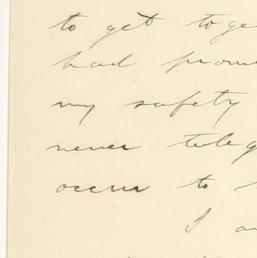 to get toge
had prom
my safety
never teleg
occur to
I a